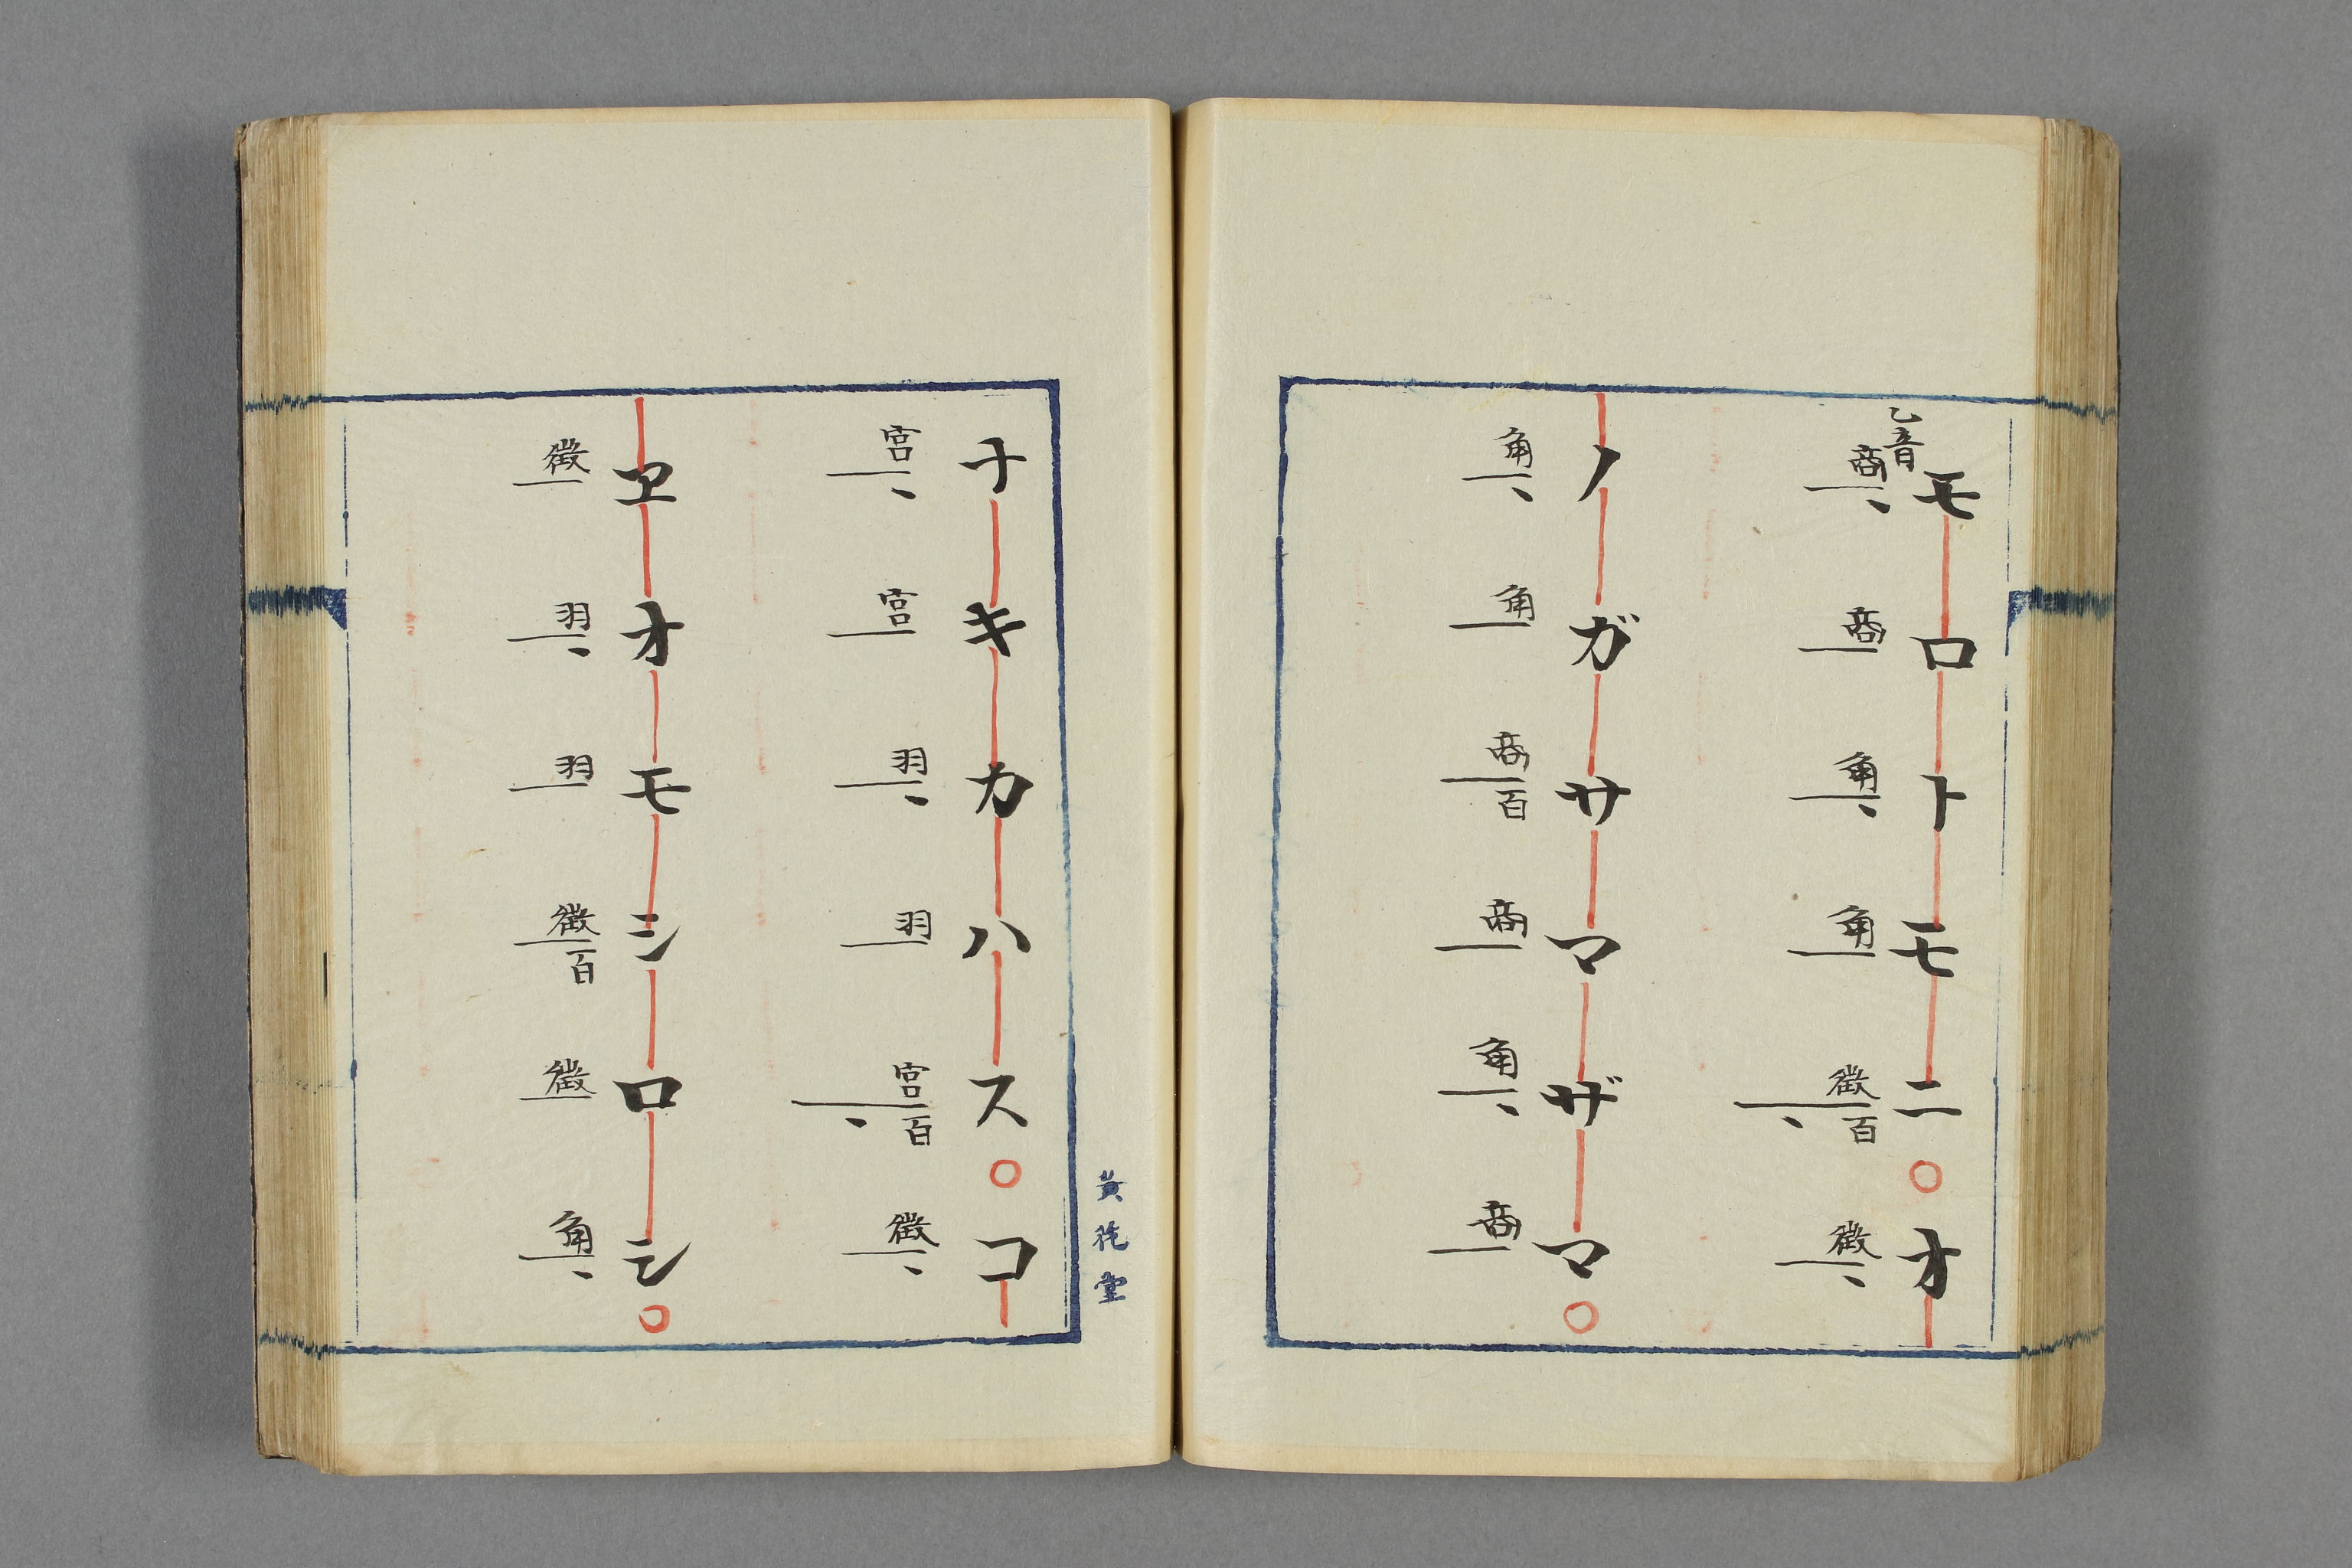 モロトモニ○オ
乙音
商、商角、角徴百、徴、
ノガサマザマ○
角、角商百商角、商
ナキカハスコ
宮、宮羽、羽宮百、徴、
ヱオモシロシ○
徴羽、羽徴百徴角、
黄
堂